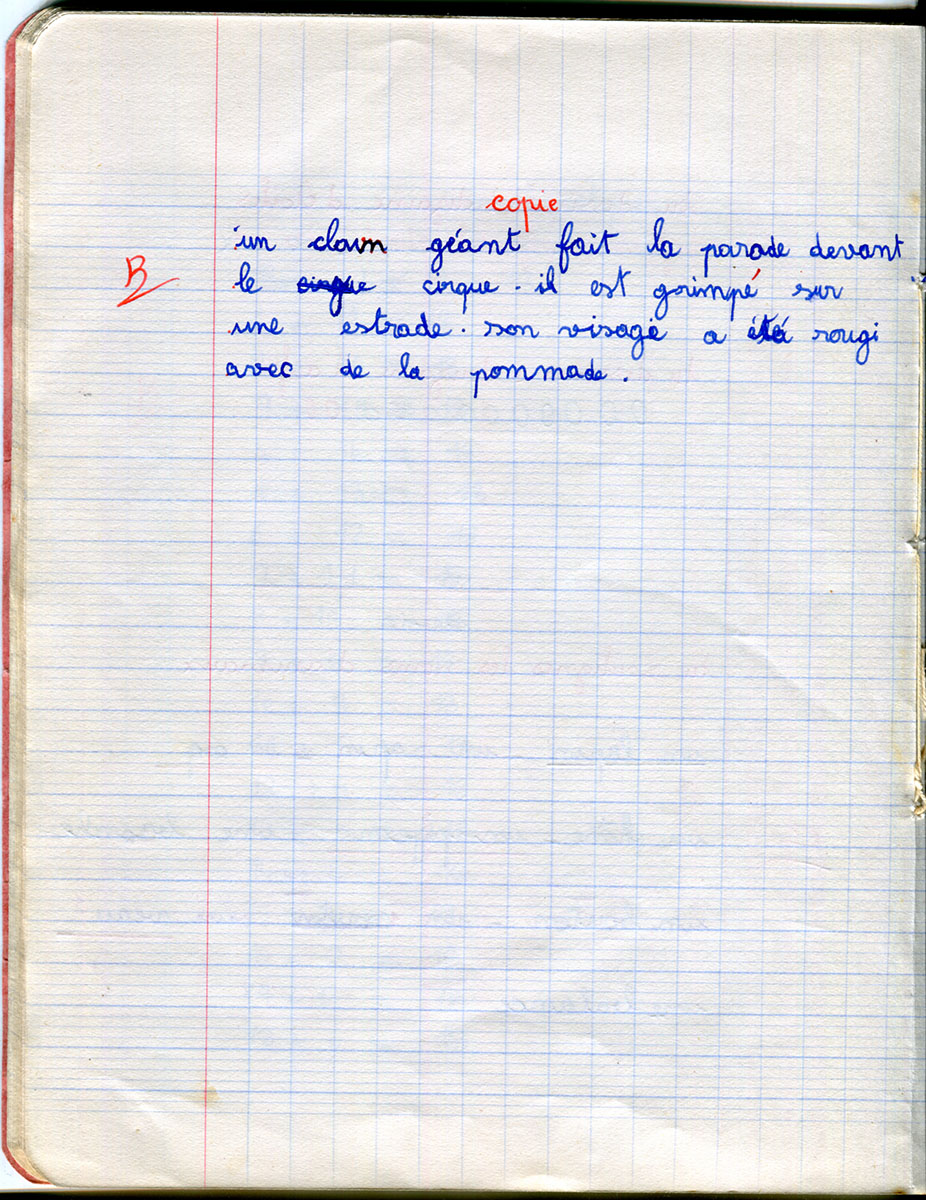 copie
un clown géant fait la parade devant
B
le cirque. il est grimpé sur
une estrade. son visage a été rougi
avec de la pommade.